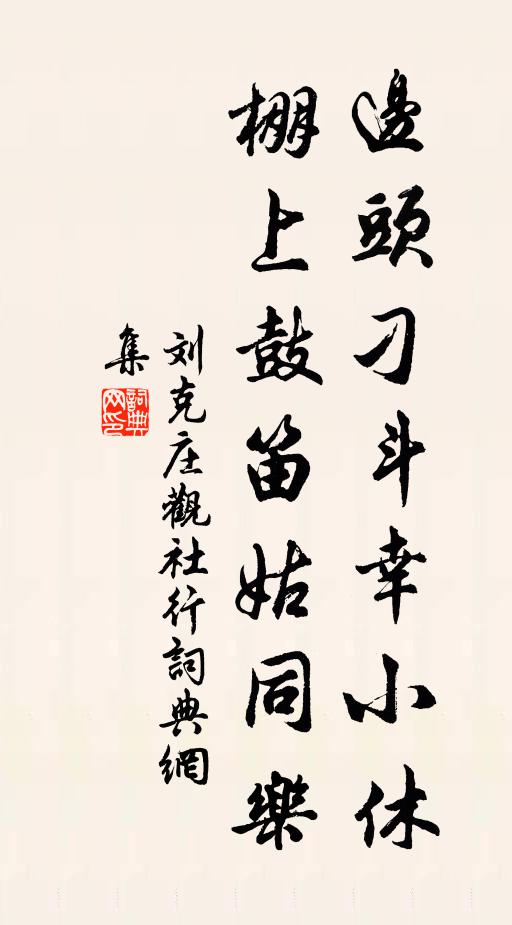 邊頭刁斗幸小休
棚上鼓笛姑同樂
刘克庄觀社行詞典網
集
詞典
网印